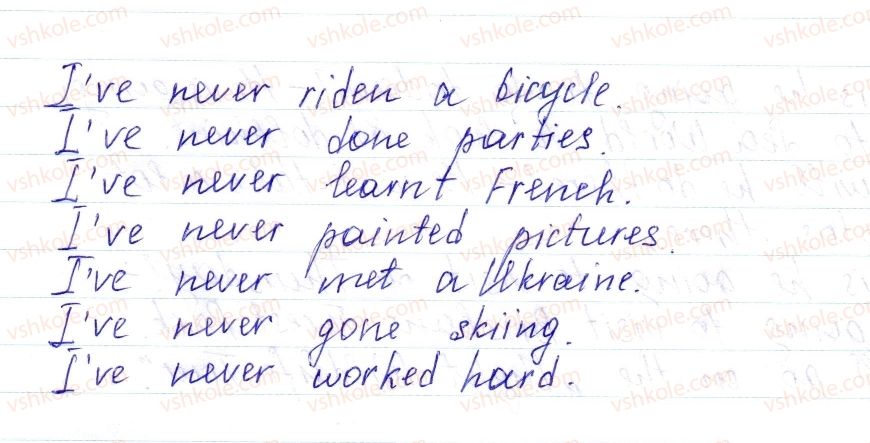 I've never riden a bicycle.
I've never done parties.
I've never learnt French.
I've never painted pictures.
I've never met a Ukraine.
I've never gone skiing.
I've never worked hard.